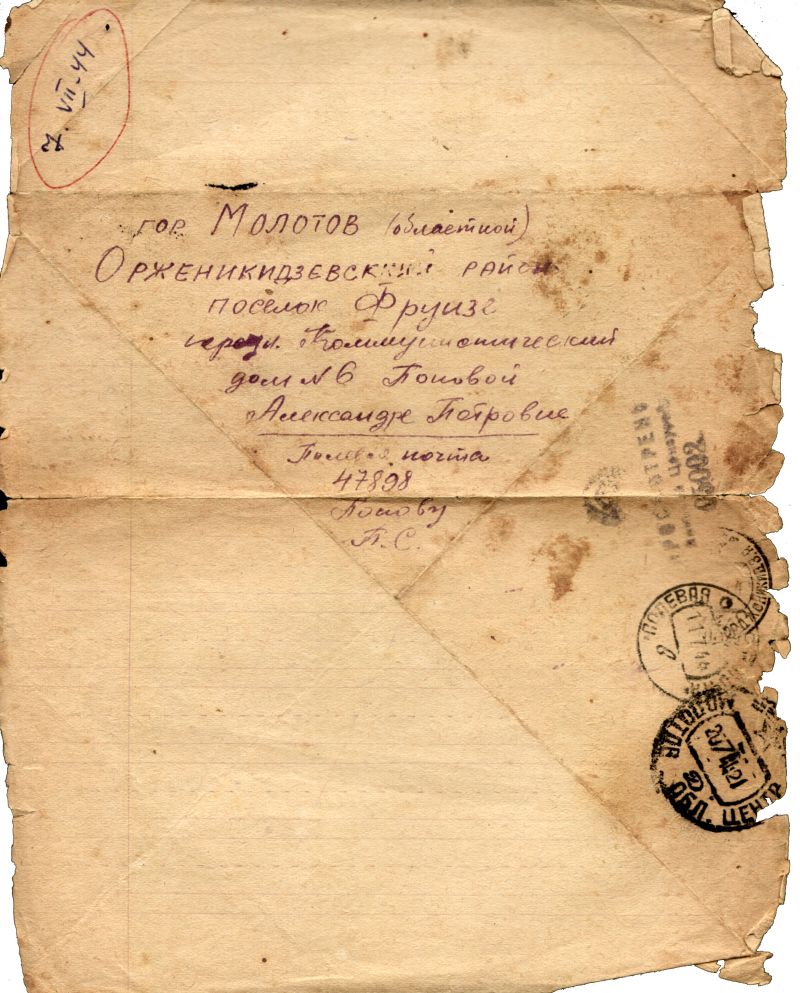 7. VII-44
гор. Молотов (областной)
Орженикидзевский район
поселок Фрунзе
Коммунистический
дом №6 Поповой
Александре Петровне
Полевая почта
47898
Попову
П.С.
ПРОСМОТРЕНО
Военной Цензурой
05002
ПОЛЕВАЯ
11 7 44
МОЛОТОВ
20 7
ОБЛ. ЦЕНТР